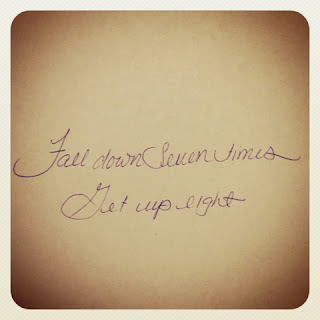 Fall down Seven times
Get up eight